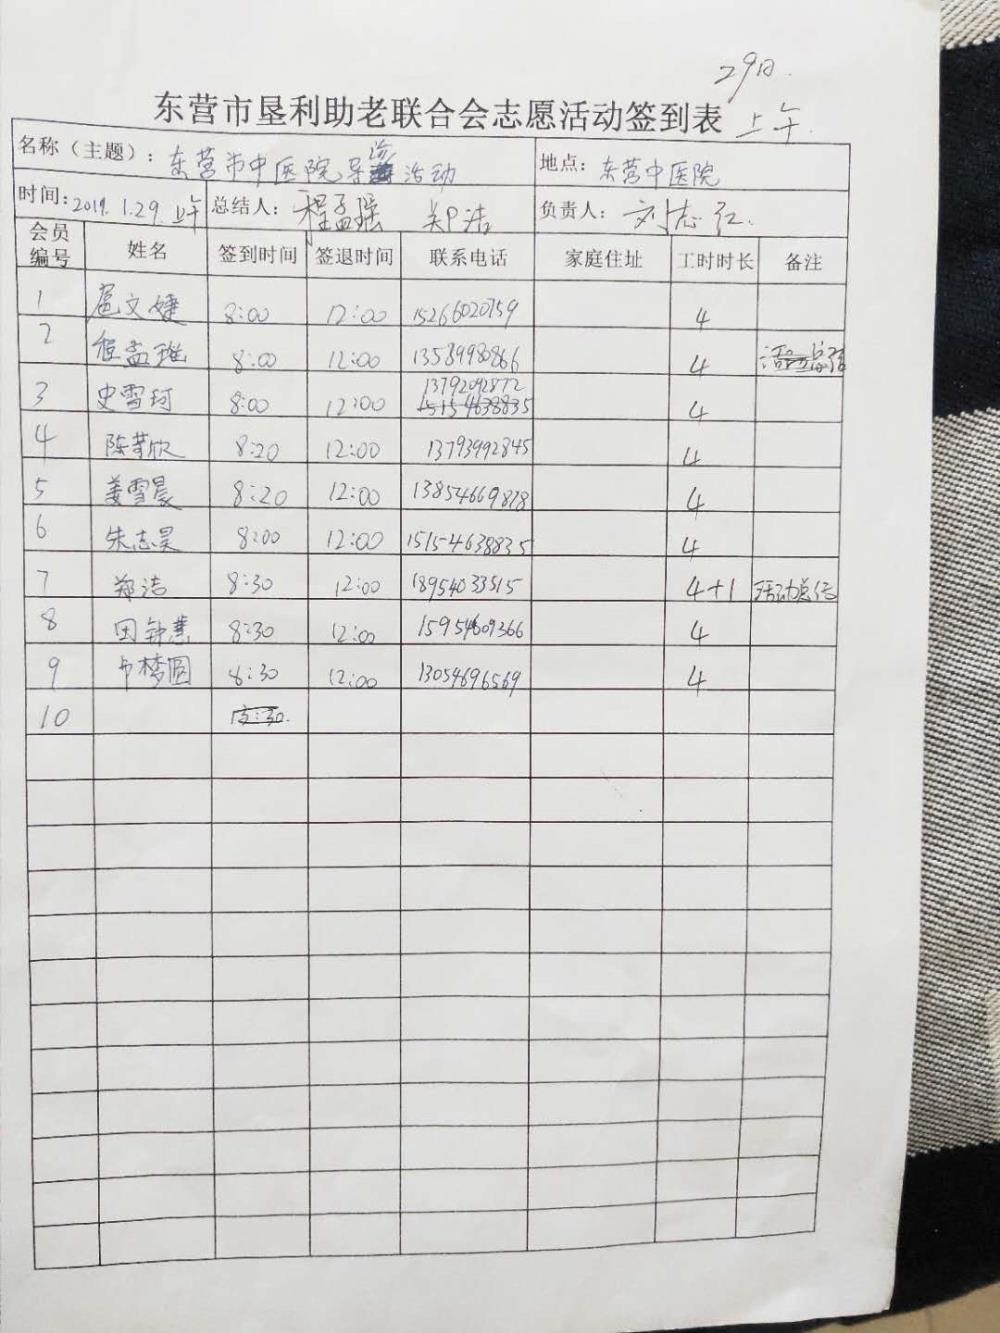 29日.
东营市垦利助老联合会志愿活动签到表 上午.
名称（主题）：东营市中医院导诊活动 地点：东营中医院
时间：2019.1.29.上午 总结人：程孟瑶 郑浩 负责人：刘志红.
会员编号 姓名 签到时间 签退时间 联系电话 家庭住址 工时时长 备注
1 扈文婕 8:00 12:00 15266020759 4
2 程孟瑶 8:00 12:00 13589980866 4
3 史雪珂 8:00 12:00 13792092872 4
4 陈 欣 8:20 12:00 13793992845 4
5 姜雪晨 8:20 12:00 13854669878 4
6 朱志昊 8:00 12:00 15154638835 4
7 郑洁 8:30 12:00 18954033515 4+1 活动总结
8 田钟慧 8:30 12:00 15954609366 4
9 梦圆 8:30 12:00 13054696569 4
10